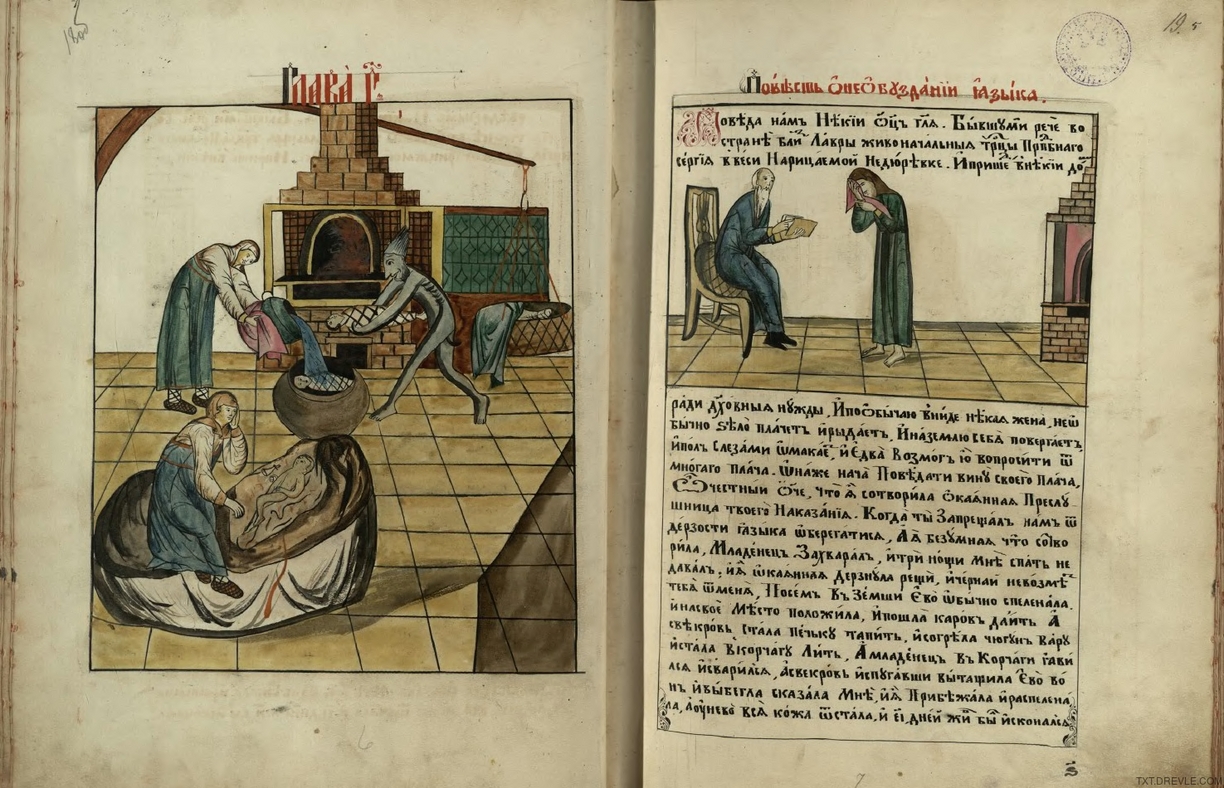 Глава̀ г҃.
Повѣсть ѻнеѻбузда́нїи ꙗ҆зы́ка.
Повѣда намъ Нѣкїи ѻ҆ц҃ъ гл҃ѧ. Бы́вшу ми рече во
странѣ бли́з Лавры живоначальныѧ трⷪ҇цы Прпⷣбнаго
се́ргїѧ ввеси Нарица́емой Недю́ревке. И прише внѣкїи до
ради дх҃о́вныѧ ну́жды, И҆поѻ҆бы́чаю вни́де нѣкаѧ жена̀, неѿ
бычно ѕѣло пла́четъ и҆рыда́етъ, И҆на зе́млю себѧ̀ поверга́етъ
и҆по́лъ слеза́ми ѡ҆мака́е, и҆ е҆два̀ возмо́гъ ю҆ вопроси́ти ѿ
мно́гаго пла́ча. ѻ҆на́же нача̀ повѣ́дати вину̀ своегѡ̀ пла́ча,
Ѽ че́стный ѻ҆́че, что̀ ѧ҆̀ сотвори́ла ѻ҆каѧ́ннаѧ преслу́
шница твоегѡ̀ наказа́нїѧ. Когда̀ ты̀ запреща́лъ намъ ѿ
де́рзости ꙗ҆зы́ка ѡ҆берега́тисѧ, Аѧ҆̀ безу́мнаѧ что̀ сотво
ри́ла, Младе́нецъ Захвара́лъ, и҆трѝ но́щи мнѣ̀ спа́ть не
дава́лъ, и҆ѧ҆̀ ѡ҆каѧ́ннаѧ дерзну́ла рещѝ, и҆че́рнаи невозмѐ
тебѧ̀ ѿменѧ̀, Посе́мъ възе́мши е҆во̀ ѡ҆бы́чно спелена́ла.
и҆насвоѐ мѣ́сто положи́ла, и҆пошла̀ каро́въ даи́ть А
свѣкро́вь ста́ла пе́чьку тапи́ть, и҆согрѣ́ла чюгу́нъ ва́ру
и҆ста́ла вкорча́гу ли́ть, А младе́нецъ въ корча́ги ꙗ҆ви́
лсѧ и҆свари́лсѧ, а҆свекро́вь и҆спуга́вши вы́тащила е҆во̀ во́
нъ и҆вы́бегла сказа́ла мнѣ̀, и҆ѧ҆̀ прибѣжа́ла и҆распелена́
ла, а҆ у҆нево̀ всѧ̀ ко́жа ѿста́ла, и҆ є҃і, дне́й жи́ бы и҆сконча́лсѧ
TXT.DREVLE.COM